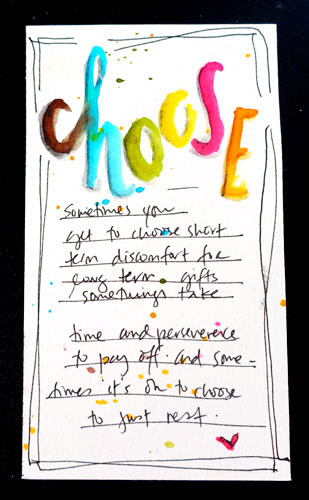 choosE
Sometimes you
get to choose short
term discomfort for
long term gifts
somethings take
time and perseverence
to pay off. and some-
times it's ok to choose
to just rest.